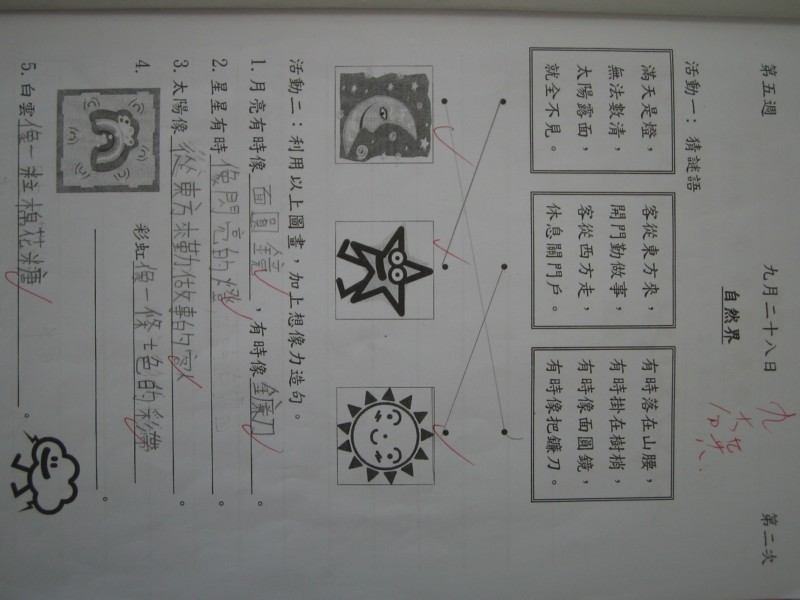 第五週 九月二十八日 第二次
自然界
活動一：猜謎語
滿天是燈，
無法數清，
太陽露面，
就全不見。
客從東方來，
開門勤做事，
客從西方走，
休息關門戶。
有時落在山腰，
有時掛在樹梢，
有時像面圓鏡，
有時像把鐮刀。
活動二：利用以上圖畫，加上想像力造句。
1. 月亮有時像面圓鏡，有時像鐮刀。
2. 星星有時像閃亮的燈。
3. 太陽像從東方來勤做事的客人。
4. 彩虹像一條七色的彩帶。
5. 白雲像一粒棉花糖。